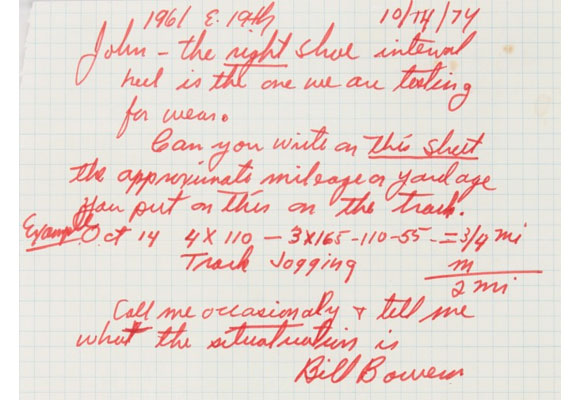 1961 E. 19th 10/14/74
John - the right shoe internal
heel is the one we are testing
for wear.
Can you write on this sheet
the approximate mileage or yardage
you put on this on the track.
Example Oct 14 4 X 110 - 3X165-110-55 - = 3/4 mi
Track Jogging m
2 mi
Call me occasionaly & tell me
what the situatuation is
Bill Bowerman